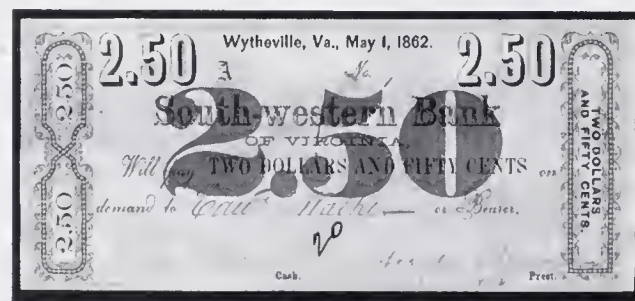 2.50 Wytheville, Va., May 1, 1862. 2.50
A No.
South-western Bank
2.50
OF VIRGINIA,
Will pay TWO DOLLARS AND FIFTY CENTS on
demand to or Bearer.
20
Cash. Prest.
2.50 2.50
TWO DOLLARS
AND FIFTY CENTS.